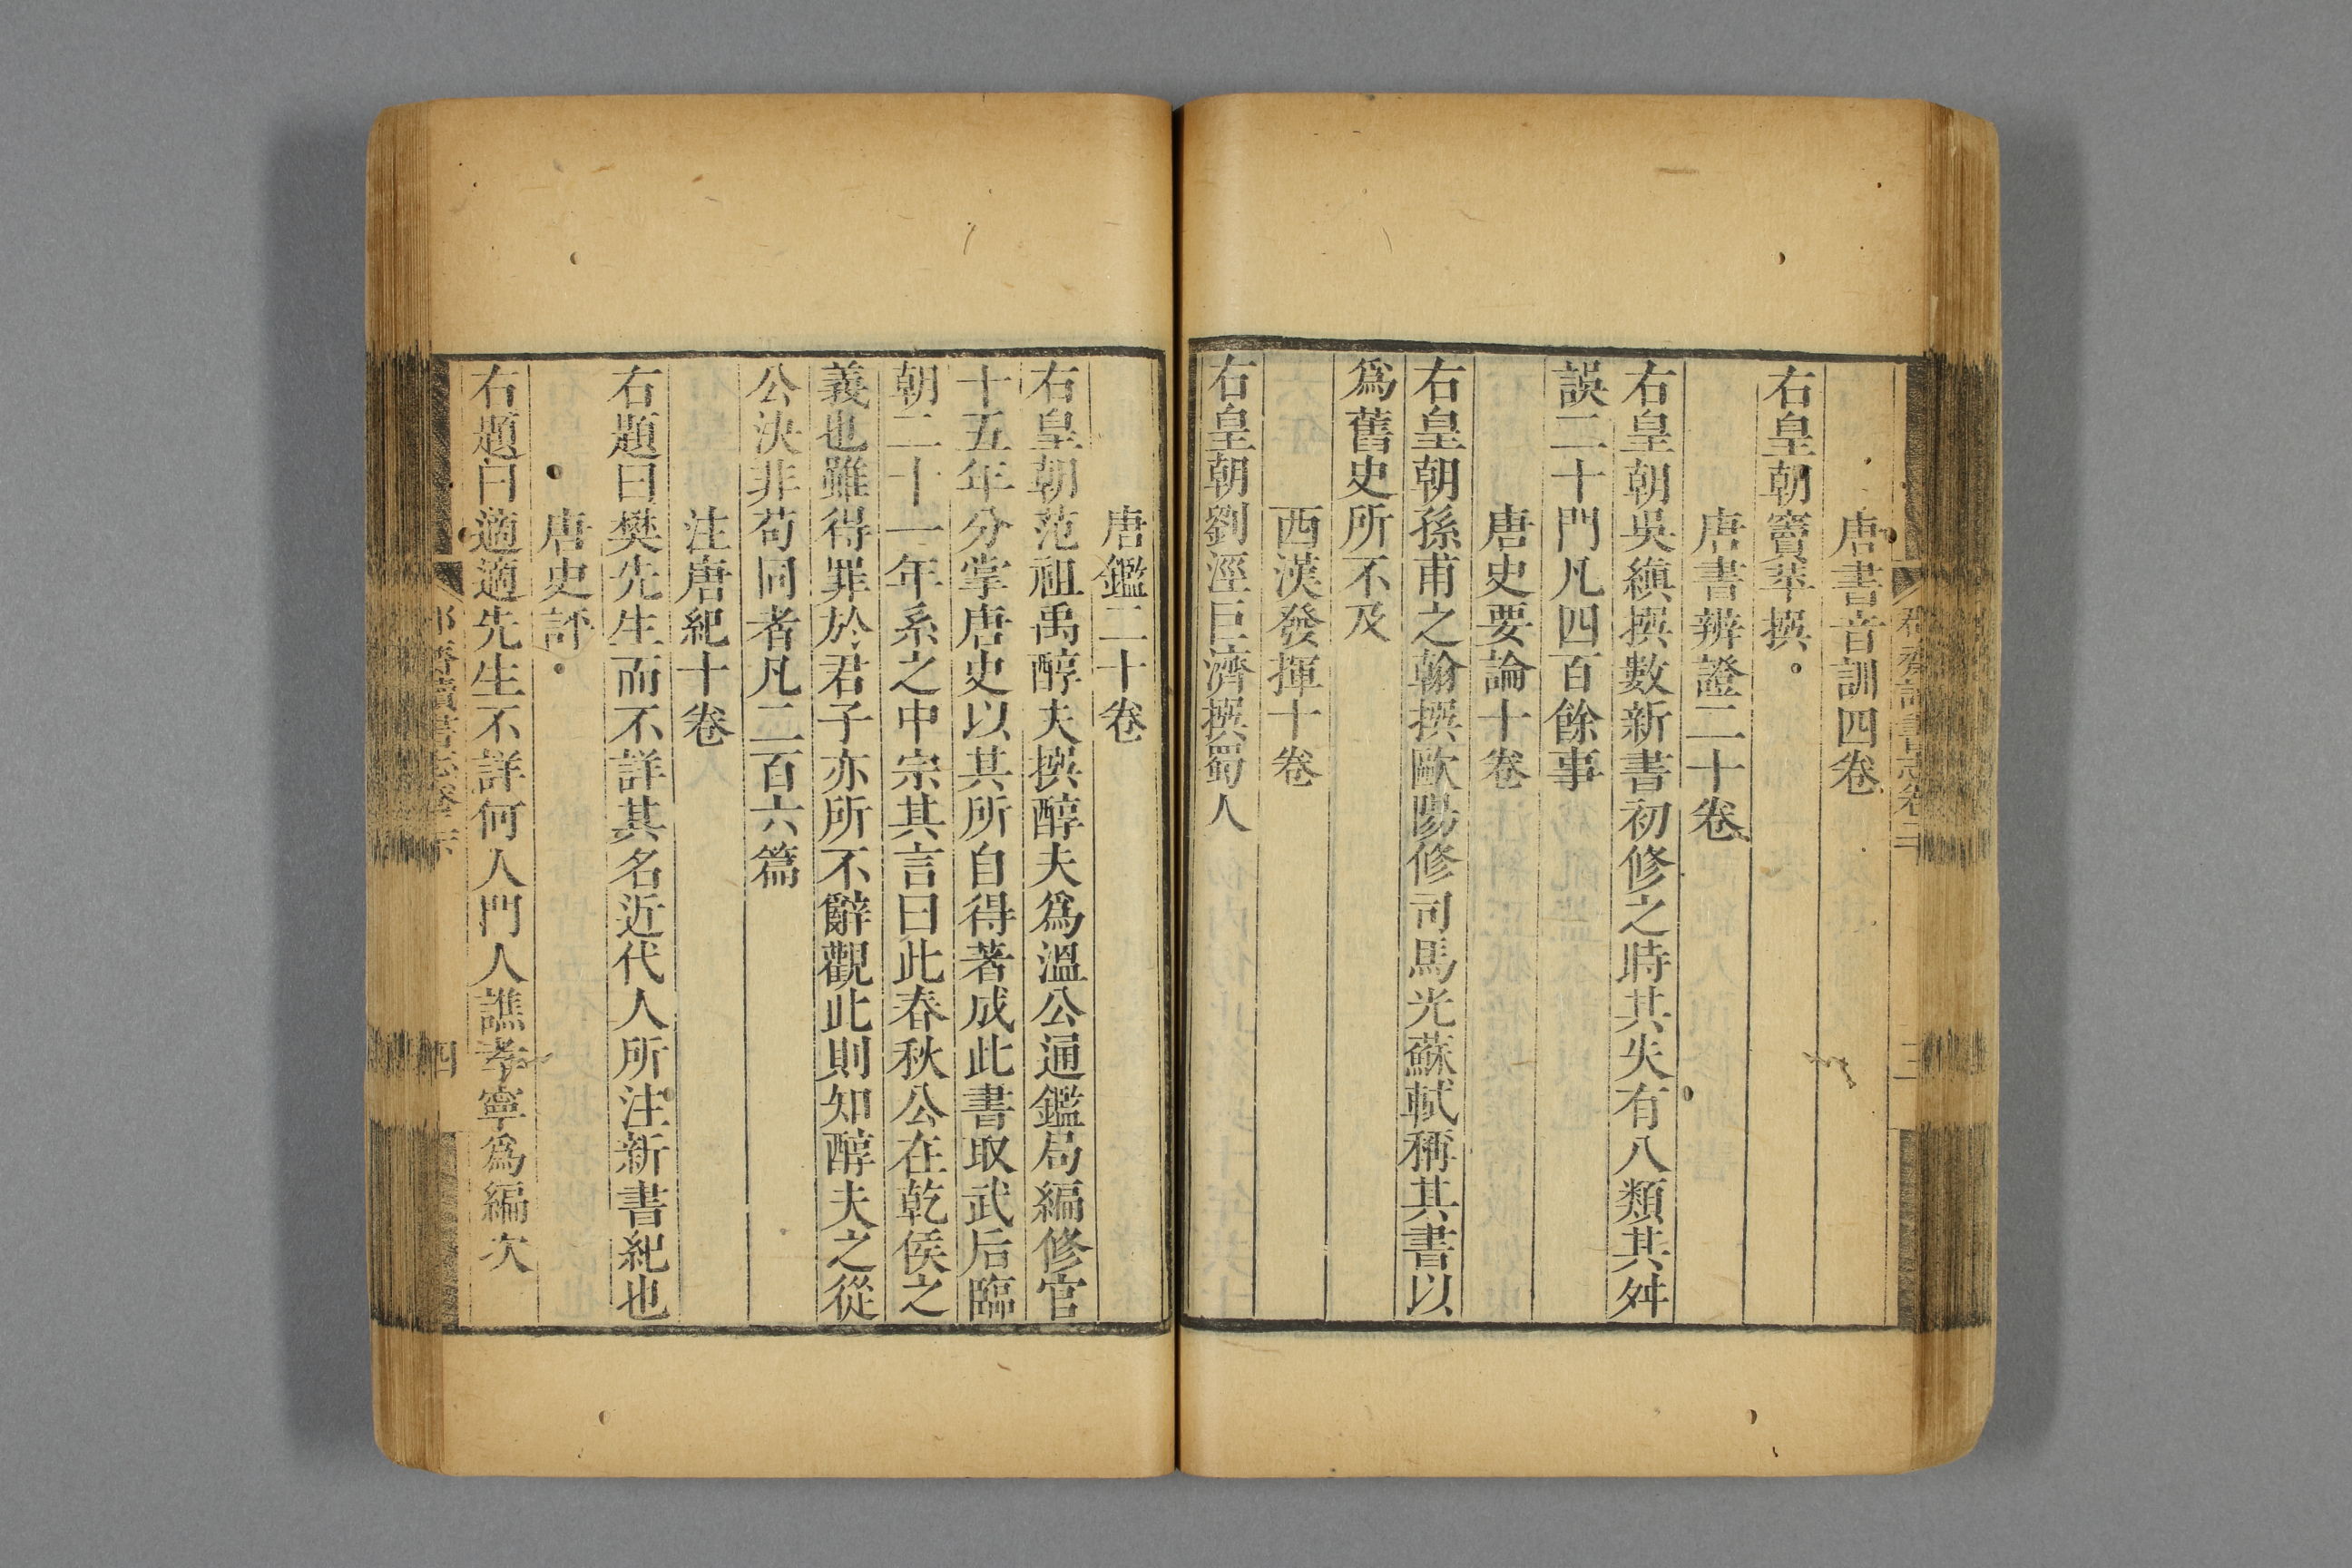 唐書音訓四卷
右皇朝竇苹撰
唐書辨證二十卷
右皇朝吳縝撰數新書初修之時其失有八類其舛
誤二十門凡四百餘事
唐史要論十卷
右皇朝孫甫之翰撰歐陽修司馬光蘇軾稱其書以
爲舊史所不及
西漢發揮十卷
右皇朝劉涇巨濟撰蜀人
唐鑑二十卷
右皇朝范祖禹醇夫撰醇夫爲溫公通鑑局編修官
十五年分掌唐史以其所自得著成此書取武后臨
朝二十一年系之中宗其言曰此春秋公在乾侯之
義也雖得罪於君子亦所不辭觀此則知醇夫之從
公決非苟同者凡二百六篇
注唐紀十卷
右題曰樊先生而不詳其名近代人所注新書紀也
唐史評
右題曰適適先生不詳何人門人譙孝寧爲編次
四